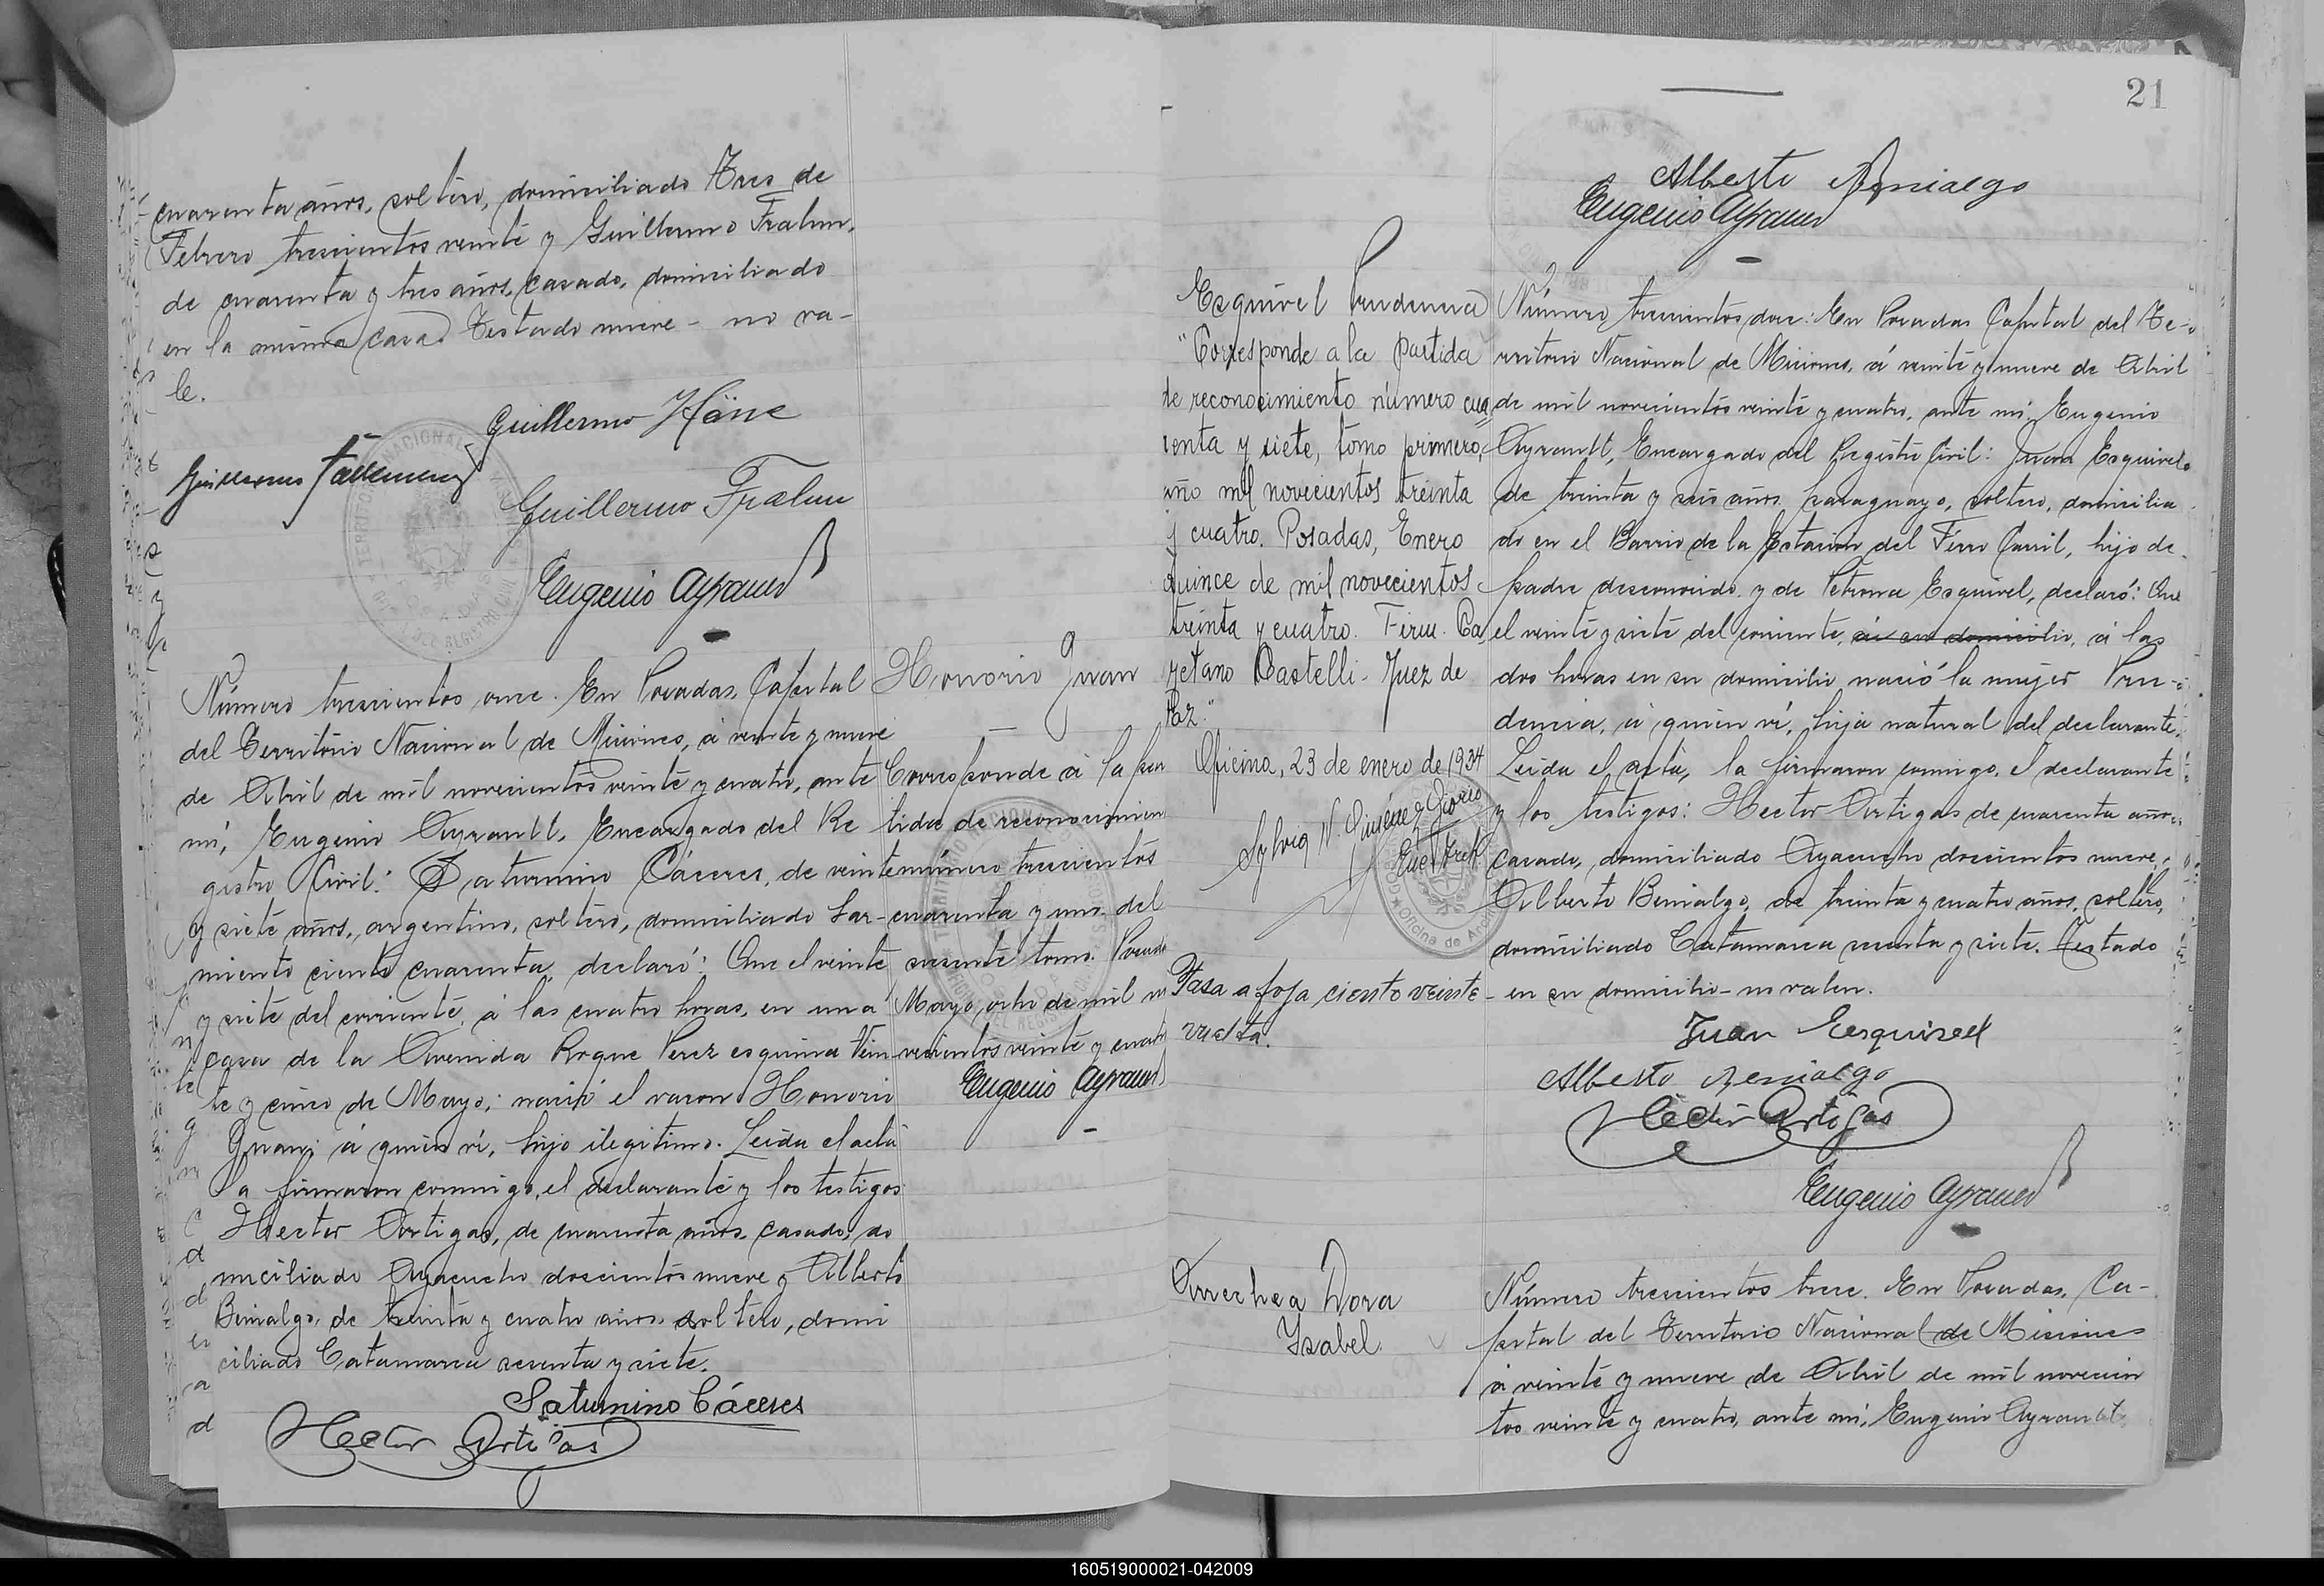 cuarenta años, soltero, domiciliado Tres de
Febrero trescientos veinte y Guillermo Fralun,
de cuarenta y tres años, casado, domiciliado
en la misma casa. Testado nueve - no va-
le.
Guillermo Häne
Guillermo
Guillermo Fralun
Eugenio Ayrault
Número trescientos once. En Posadas, Capital
del Territorio Nacional de Misiones, á veinte y nueve
de Abril de mil novecientos veinte y cuatro, ante
mí, Eugenio Ayrault, Encargado del Re
gistro Civil: Saturnino Cáceres, de veinte
y siete años, argentino, soltero, domiciliado Sar-
miento ciento cuarenta, declaró: Que el veinte
y siete del corriente, á las cuatro horas, en una
casa de la Avenida Roque Perez esquina Vein-
te y cinco de Mayo; nació el varon Honorio
Juan; á quien ví, hijo ilegitimo. Leida el acta
la firmaron conmigo, el declarante y los testigos
Hector Artigas, de cuarenta años, casado, do
miciliado Ayacucho doscientos nueve y Alberto
Benialgo, de treinta y cuatro años soltero, domi
ciliado Catamarca sesenta y siete.
Saturnino Cáceres
Hector Artigas
Honorio Juan
Corresponde á la par
tida de reconocimien
número trescientos
cuarenta y uno del
presente tomo. Posadas
Mayo, ocho de mil no
vecientos veinte y cuatro
Eugenio Ayrault
21
Alberto Benialgo
Eugenio Ayrault
Esquivel Prudencia
"Corresponde a la partida
de reconocimiento número cua
renta y siete, tomo primero,
año mil novecientos treinta
y cuatro. Posadas, Enero
quince de mil novecientos
treinta y cuatro. Firm. Ca
yetano Castelli - Juez de
Paz."
Oficina, 23 de enero de 1934
Sylvia N. Giménez
Pasa a foja ciento veinte
vuelta.
Número trescientos doce: En Posadas Capital del Te-
rritorio Nacional de Misiones, á veinte y nueve de Abril
de mil novecientos veinte y cuatro, ante mí, Eugenio
Ayrault, Encargado del Registro Civil: Juan Esquivel
de treinta y seis años, paraguayo, soltero, domicilia
do en el Barrio de la Estacion del Ferro Carril, hijo de
padre desconocido y de Petrona Esquivel, declaró: Que
el veinte y siete del corriente, en su domicilio, á las
dos horas en su domicilio nació la mujer Pru-
dencia, á quien ví, hija natural del declarante.
Leida el acta, la firmaron conmigo, el declarante
y los testigos: Hector Artigas de cuarenta años,
casado, domiciliado Ayacucho doscientos nueve,
Alberto Benialgo, de treinta y cuatro años, soltero,
domiciliado Catamarca sesenta y siete. Testado
- en su domicilio - no valen.
Juan Esquivel
Alberto Benialgo
Hector Artigas
Eugenio Ayrault
Arrechea Dora
Isabel.
Número trescientos trece. En Posadas, Ca-
pital del Territorio Nacional de Misiones
á veinte y nueve de Abril de mil novecien
tos veinte y cuatro, ante mí, Eugenio Ayrault,
160519000021-042009